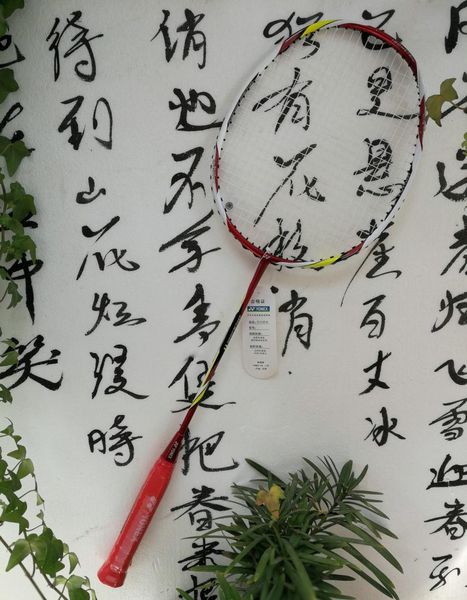 春归飞雪迎春到
已是悬崖百丈冰
犹有花枝俏
俏也不争春只把春来报
待到山花烂漫时
笑
合格证
YONEX
YONEX